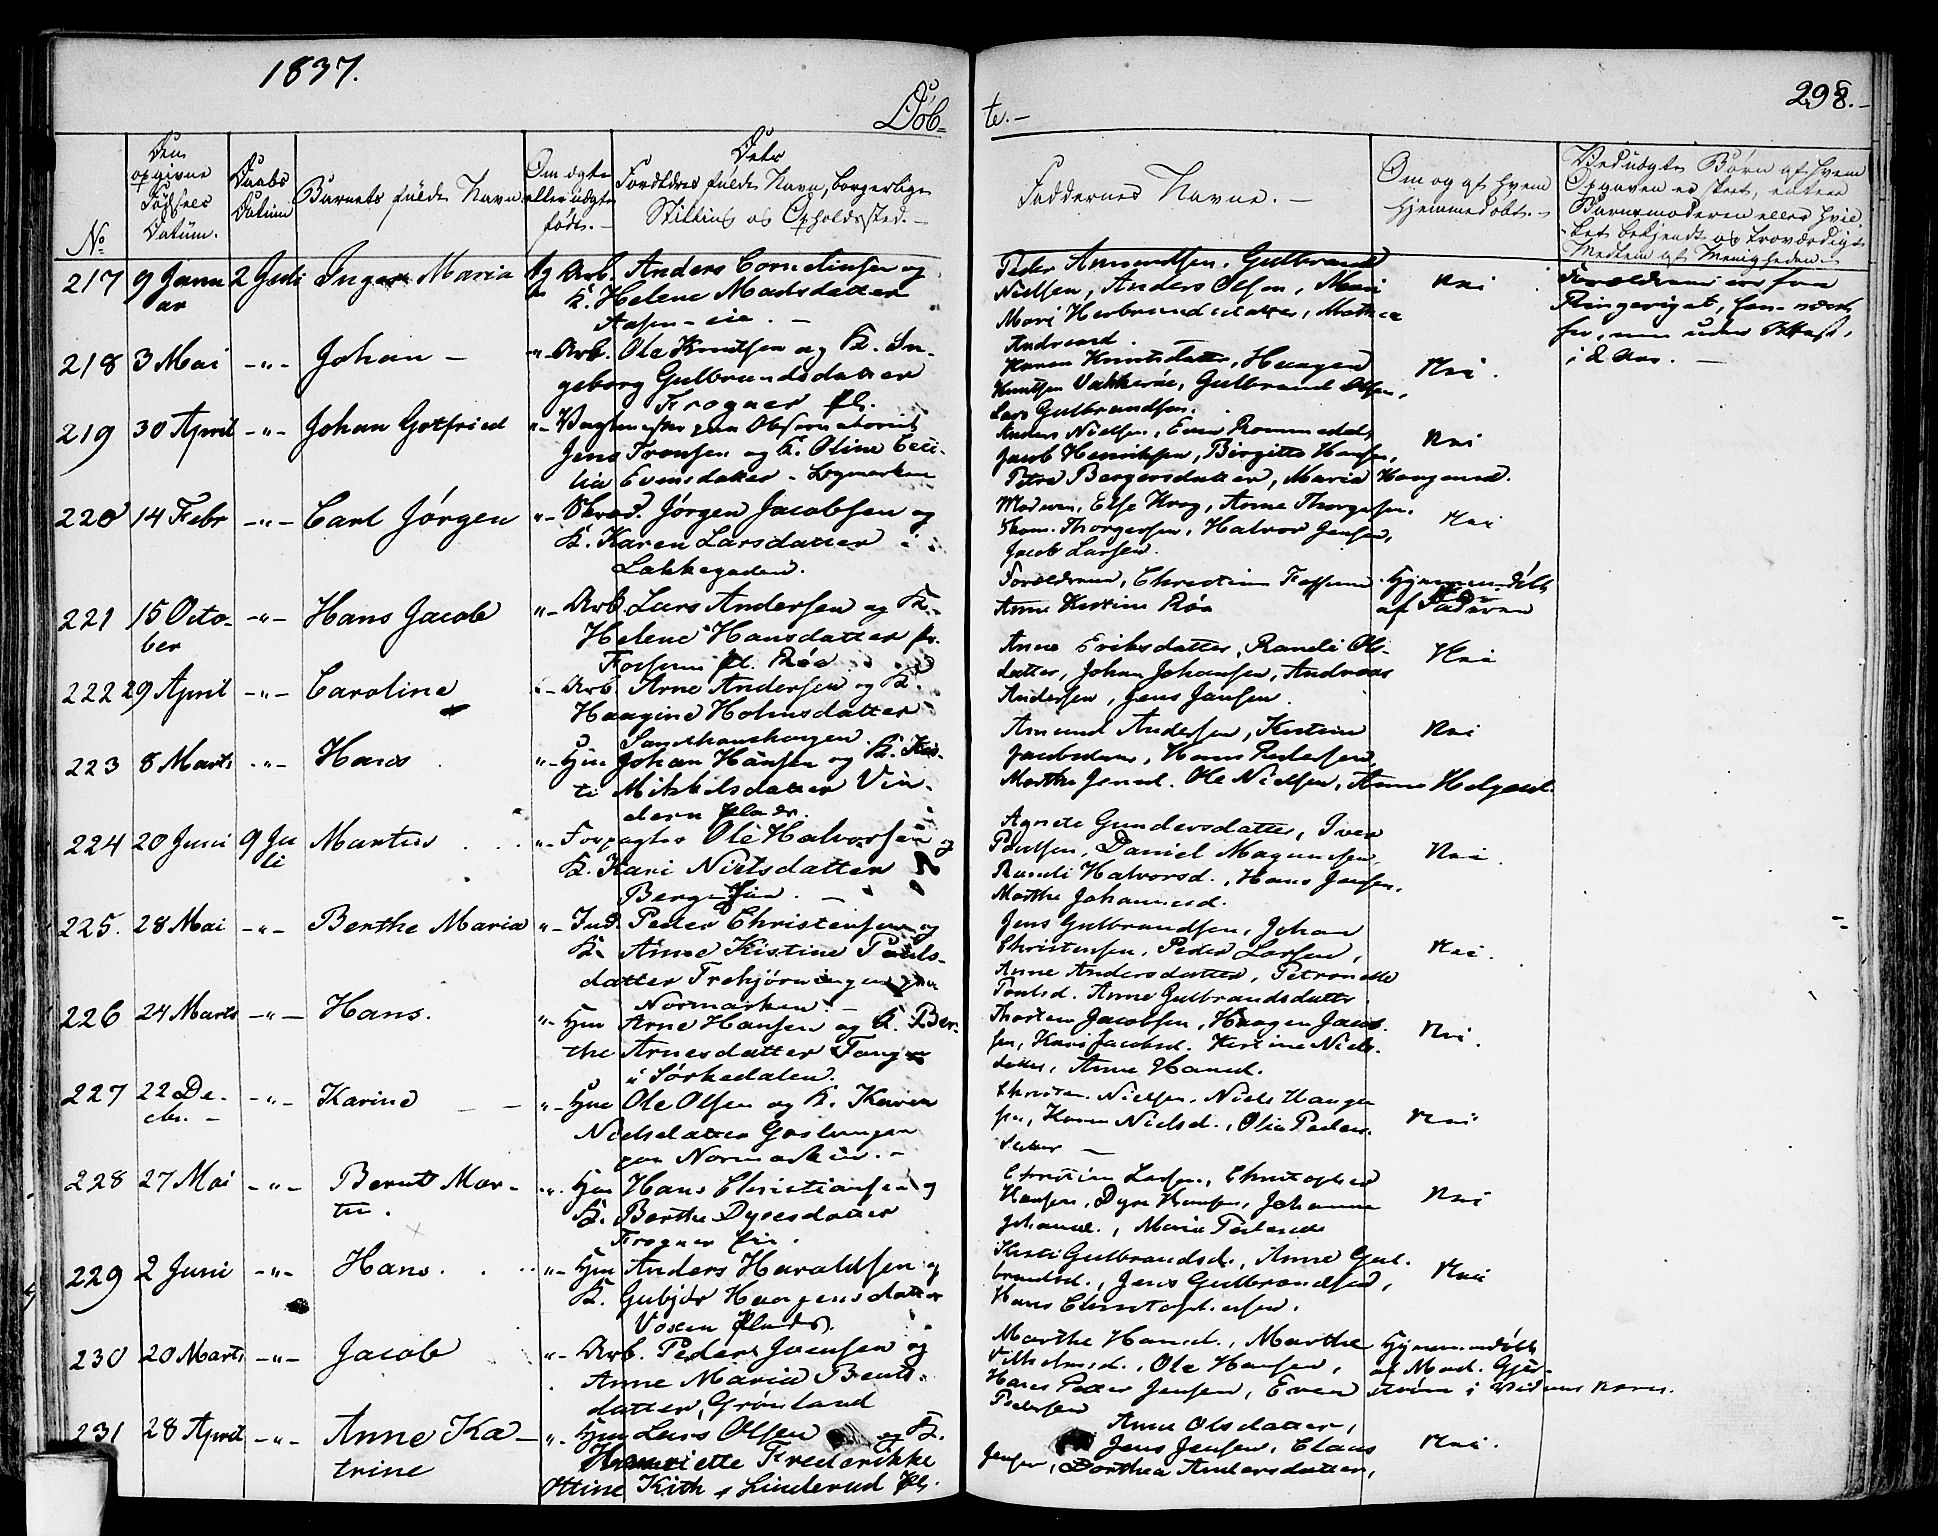 1837.
Døb-
te.-
298.-
No
Den opgivne Fødsels Datum.
Daabs Datum
Barnets fulde Navn
Om ægte eller uægte født.-
Dets Forældres fulde Navn, borgerlige Stilling og Opholdssted.-
Faddernes Navne.-
Om og af hvem hjemmedøbt.-
Ved uægte Børn af hvem Opgaven er skeet, enten Barnemoderen eller hvilket bekjendt og troværdigt Medlem af Menigheden.-
217 9 Janu 2 Juli Inger Maria Æg Arb. Anders Cornelinsen og
ar te K. Helene Madsdatter
Aasen-eie.-
Peder Amundsen, Gulbrand
Nielsen, Anders Olsen, Mari
Mari Herbrandsdatter, Mathea
Nei
Forældrene er fra
Ringeriget,
i 2 Aar.-
218 3 Mai -"- Johan - "- Arb. Ole Knutsen og K. In-
geborg Gulbrandsdatter
Frogner pl.
Karen Knutsdatter, Haagen
Knutsen Vækkerøe, Gulbrand Olsen,
Lars Gulbrandsen.
Nei.
219 30 April -"- Johan Gotfried "- Vagtmester paa Observatoriet
Jens Fronsen og K. Oline Ceci-
lia Evensdatter - Bymarken
Anders Nielsen, Even Rommedal,
Jacob Henriksen, Birgitte Hansen,
Petra Bergersdatter, Maria Haagensd.
Nei
220 14 Febr -"- Carl Jørgen "- Skræd. Jørgen Jacobsen og
K. Karen Larsdatter
Lakkegaden.
Moderen, Else Krog, Anne Thorgersen.
Thom. Thorgersen, Halvor Jensen,
Jacob Larsen.
Nei
221 15 Octo- -"- Hans Jacob "- Arb. Lars Andersen og K.
ber Helene Hansdatter fr.
Fossum pl. Røa
Forældrene, Christian Fossum
Anne Kirstine Røa
Hjemmedøbt
af Faderen
222 29 April -"- Caroline "- Arb. Arne Andersen og K.
Haagine Holmsdatter
Anne Eriksdatter, Randi Ols-
datter, Johan Johansen, Andreas
Andersen, Jens Jansen.
Nei
223 8 Marts -"- Hans "- Hm Johan Hansen og K. Kir-
ti Mikkelsdatter Vin-
dern plads.
Amund Andersen, Kirstine
Jacobsdatter, Hans Pedersen,
Marthe Jensd. Ole Nielsen, Anne Helgesd.
Nei
224 20 Juni 9 Ju Martus "- Forpagter Ole Halvorsen og
li K. Kari Nielsdatter
Berg eie.-
Agnete Gundersdatter, Iver
Poulsen, Daniel Magnusen,
Randi Halvorsd., Hans Jensen,
Marthe Johannesd.
Nei.
225. 28 Mai -"- Berthe Maria "- Ind. Peder Christensen og
K. Anne Kistine Pouls-
datter Trehjørningen paa
Normarken.-
Jens Gulbrandsen, Johan
Christensen, Peder Larsen,
Anne Andersdatter, Petronelle
Poulsd. Anne Gulbrandsdatter
Nei.
226 24 Marts -"- Hans. "- Hm Arne Hansen og K. Ber-
the Arnesdatter Tangen
i Sørkedalen.
Thorsten Jacobsen, Haagen Jacob-
sen, Kari Jacobsd. Kirstine Niels-
datter, Anne Hansd.
Nei.
227 22 De- -"- Karine - "- Hm Ole Olsen og K. Karen
cbr.- Nielsdatter Gaslungen
paa Normarken.-
Christen Nielsen, Niels Haagen
sen, Karen Nielsd., Olia Peders-
datter -
Nei
228 27 Mai -"- Bernt Mar- "- Hm Hans Christiansen og
tin. K. Berthe Dyresdatter
Frogner eie.
Christian Larsen, Christopher
Hansen, Dyre Hansen, Johanne
Johansd., Maria Pedersd.
Nei
229 2 Juni -"- Hans. "- Hm Anders Haraldsen og
K. Gubjør Haagensdatter
Voxen plads.
Kirsti Gulbrandsd., Anne Gul-
brandsd., Jens Gulbrandsen,
Hans Christophersen.
Nei
230 20 Marts -"- Jacob "- Arb. Peder Jacobsen og
Anne Maria Bents-
datter, Grønland
Marthe Hansd., Marthe
Vilhelmsd., Ole Hansen,
Hans Petter Jensen, Even
Pedersen
Hjemmedøbt
af Mad. Gjer-
strøm i Vidnes Navn.
231 28 April -"- Anne Ka- "- Hm Lars Olsen og K.
trine Henriette Frederikke
Ottine Kith, Linderud pl.
Anne Olsdatter,
Jens Jensen, Claus
Jensen, Dorthea Andersdatter,
Nei.